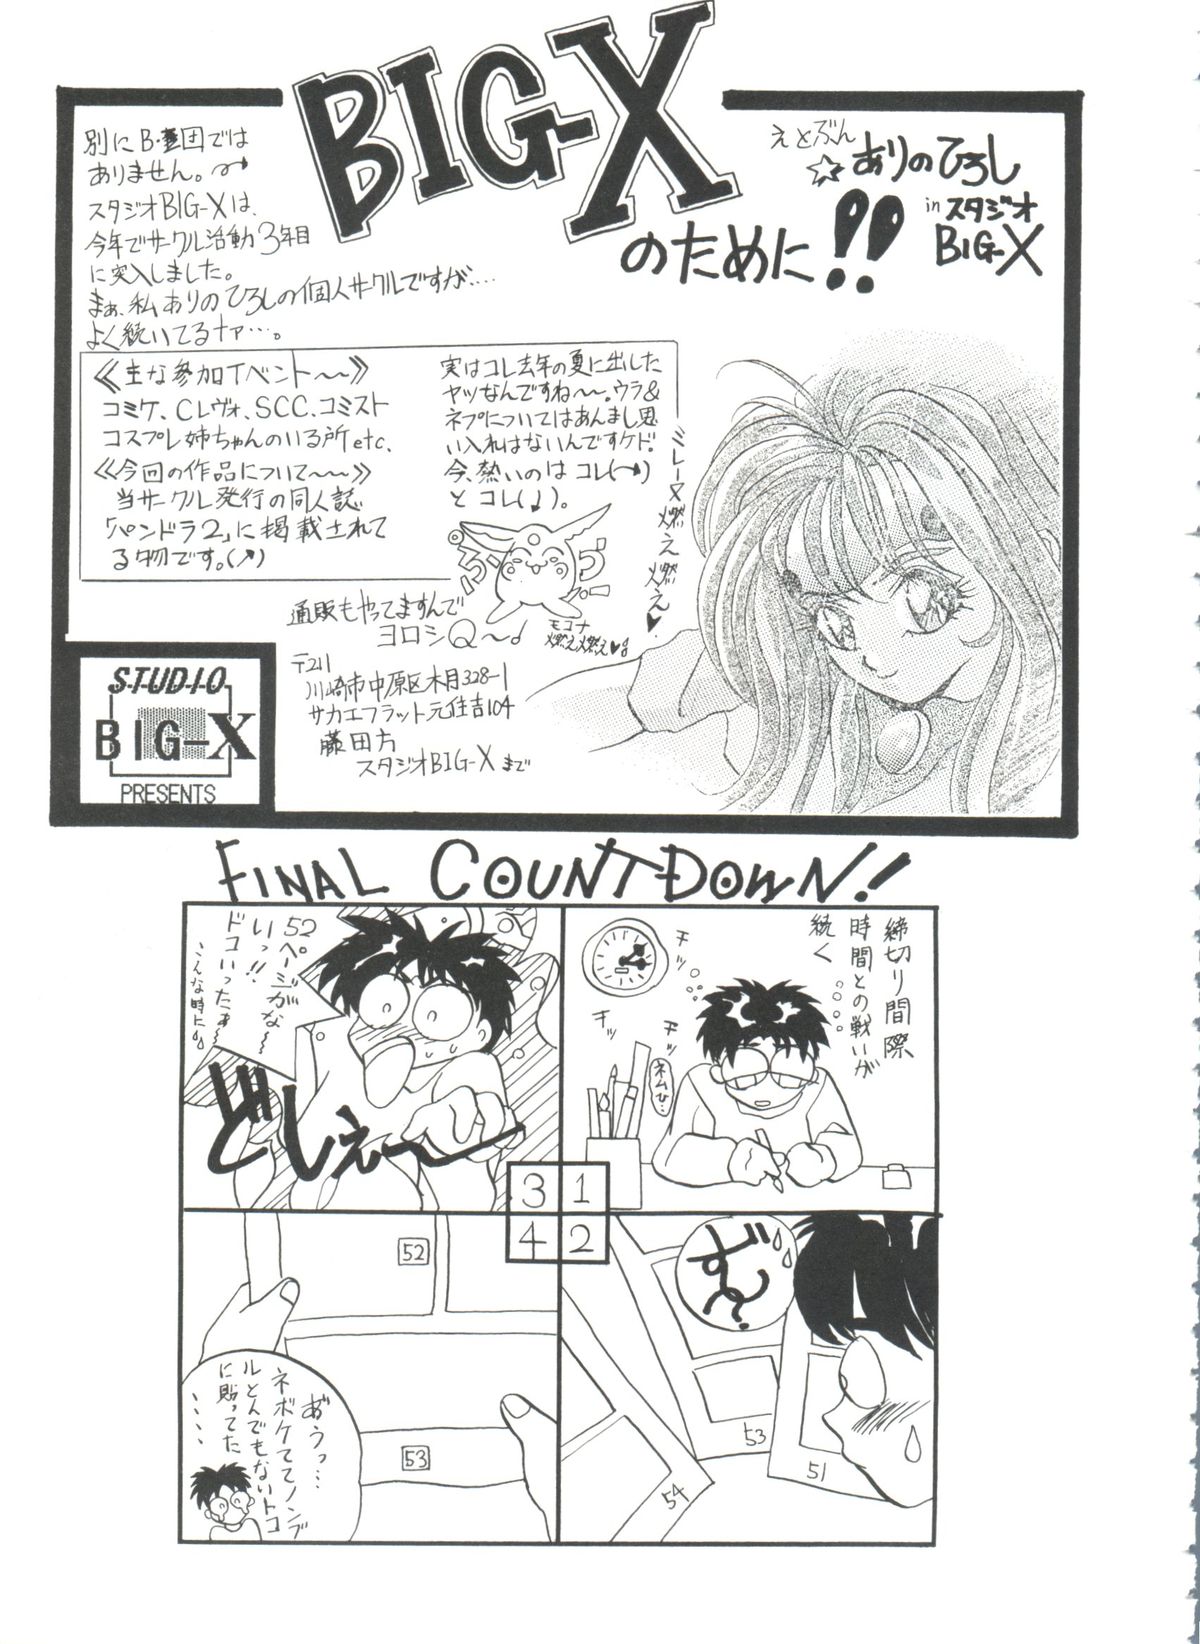 BIG-X
のために!!
えとぶん
☆ありのひろし
in スタジオ
BIG-X
別にB・団では
ありません。
スタジオBIG-Xは、
今年でサークル活動3年目
に突入しました。
まぁ、私ありのひろしの個人サークルですが....
よく続いてるナァ…。
《主な参加イベント〜〜》
コミケ、Cレヴォ、SCC、コミスト
コスプレ姉ちゃんのいる所etc.
《今回の作品について〜〜》
当サークル発行の同人誌
「パンドラ2」に掲載されて
る物です。(↗)
実はコレ去年の夏に出した
ヤツなんですね〜〜。ウラ&
ネプについてはあんまし思
い入れはないんですケド。
今、熱いのはコレ(→)
とコレ(↓)。
ミレーヌ燃え燃え♥
ぷう
ぷー
モコナ
燃え燃え♥
通販もやってますんで
ヨロシQ〜♩
〒211
川崎市中原区木月328-1
サカエフラット元住吉104
藤田方
スタジオBIG-Xまで
STUDIO
BIG-X
PRESENTS
FINAL COUNTDOWN!
締切り間際
時間との戦いが
続く
チッ
チッ
チッ
チッ
ネムひ…
1
ずーん
53
51
54
2
52ページがな〜
いっ!!
ドコいったぁ〜
〜こんな時に
どしぇ〜
3
52
53
おうっ…
ネボケててノンブ
ルとんでもないトコ
に貼ってた
4